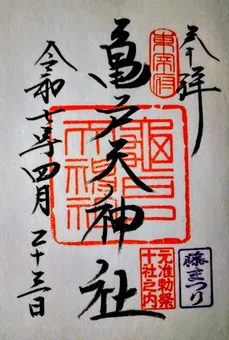 奉拝
東宰府
亀戸天神社
亀戸
天神社
元准勅祭
十社之内
藤まつり
令和七年四月二十三日